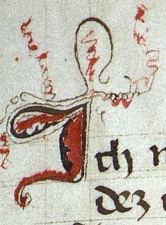 Ich
dez